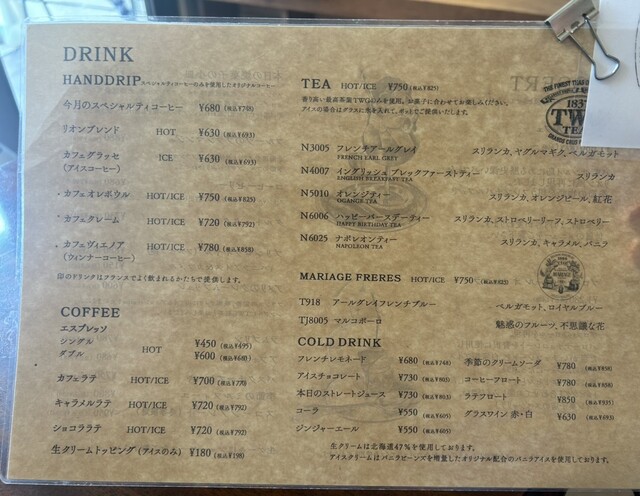 DRINK
HANDDRIP スペシャルティコーヒーのみを使用したオリジナルコーヒー
今月のスペシャルティコーヒー ¥680 (税込¥748)
リオンブレンド HOT ¥630 (税込¥693)
カフェグラッセ ICE ¥630 (税込¥693)
(アイスコーヒー)
・カフェオレボウル HOT/ICE ¥750 (税込¥825)
・カフェクレーム HOT/ICE ¥720 (税込¥792)
・カフェヴィエノア HOT/ICE ¥780 (税込¥858)
(ウィンナーコーヒー)
印のドリンクはフランスでよく飲まれるかたちで提供します。
COFFEE
エスプレッソ
シングル HOT ¥450 (税込¥495)
ダブル ¥600 (税込¥660)
カフェラテ HOT/ICE ¥700 (税込¥770)
キャラメルラテ HOT/ICE ¥720 (税込¥792)
ショコララテ HOT/ICE ¥720 (税込¥792)
生クリームトッピング (アイスのみ) ¥180 (税込¥198)
TEA HOT/ICE ¥750 (税込¥825)
香り高い最高茶葉TWGのみを使用。お菓子に合わせてお楽しみください。
アイスの場合はグラスに氷を入れて、ポットでご提供いたします。
1837
TWG
TEA
N3005 フレンチアールグレイ スリランカ、ヤグルマギク、ベルガモット
FRENCH EARL GREY
N4007 イングリッシュ ブレックファーストティー スリランカ
ENGLISH BREAKFAST TEA
N5010 オレンジティー スリランカ、オレンジピール、紅花
OGANGE TEA
N6006 ハッピーバースデーティー スリランカ、ストロベリーリーフ、ストロベリー
HAPPY BIRTHDAY TEA
N6025 ナポレオンティー スリランカ、キャラメル、バニラ
NAPOLEON TEA
MARIAGE FRERES HOT/ICE ¥750 (税込¥825)
T918 アールグレイフレンチブルー ベルガモット、ロイヤルブルー
TJ8005 マルコポーロ 魅惑のフルーツ、不思議な花
COLD DRINK
フレンチレモネード ¥680 (税込¥748)
アイスチョコレート ¥730 (税込¥803)
本日のストレートジュース ¥730 (税込¥803)
コーラ ¥550 (税込¥605)
ジンジャーエール ¥550 (税込¥605)
季節のクリームソーダ ¥780 (税込¥858)
コーヒーフロート ¥780 (税込¥858)
ラテフロート ¥850 (税込¥935)
グラスワイン 赤・白 ¥630 (税込¥693)
生クリームは北海道47%を使用しております。
アイスクリームはバニラビーンズを増量したオリジナル配合のバニラアイスを使用しております。